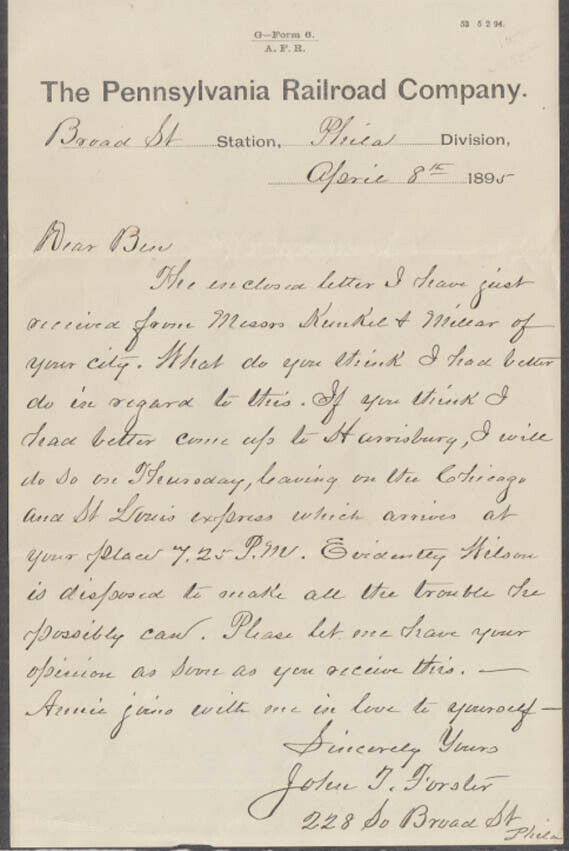 53 5 2 94.
G—Form 6.
A. F. R.
The Pennsylvania Railroad Company.
Broad St Station, Phila Division,
April 8th 1895
Dear Ben
The enclosed letter I have just
received from Messrs Kunkel & Millar of
your city. What do you think I had better
do in regard to this. If you think I
had better come up to Harrisburg, I will
do so on Thursday, leaving on the Chicago
and St Louis express which arrives at
your place 7.25 P.M. Evidently Wilson
is disposed to make all the trouble he
possibly can. Please let me have your
opinion as soon as you receive this. —
Annie joins with me in love to yourself —
Sincerely Yours
John T. Forster
228 So Broad St
Phila